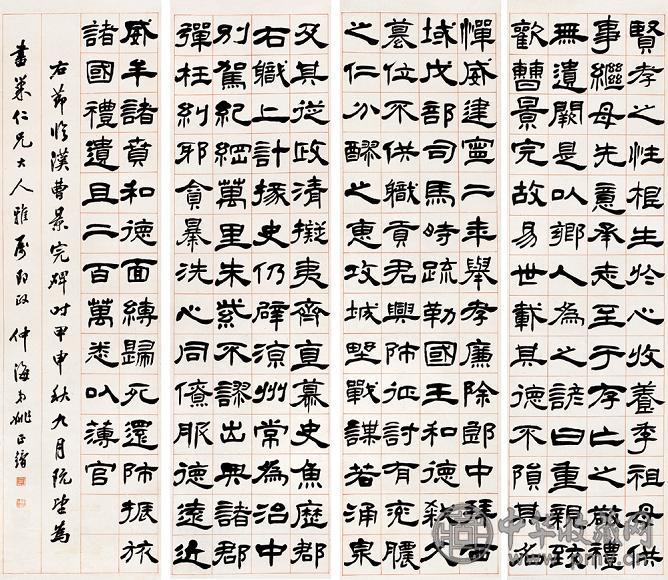 賢孝之性根生於心收養季祖母供
事繼母先意承志至于存亡之敬禮
無遺闕是以鄉人為之諺曰重親致
歡曹景完故易世載其德不隕其名
憚威建寧二年舉孝廉除郎中拜西
域戊部司馬時疏勒國王和德殺父
篡位不供職貢君興師征討有兗膿
之仁分醪之惠攻城野戰謀若涌泉
及其從政清擬夷齊直慕史魚歷郡
右職上計掾史仍辟涼州常為治中
別駕紀綱萬里朱紫不謬出典諸郡
彈枉糾邪貪暴洗心同僚服德遠近
威牟諸賁和德面縛歸死還師振旅
諸國禮遺且二百萬悉以薄官
右節臨漢曹景完碑時甲申秋九月既望為
仁兄大人雅屬即政 仲海弟姚正鏞
中华收藏网